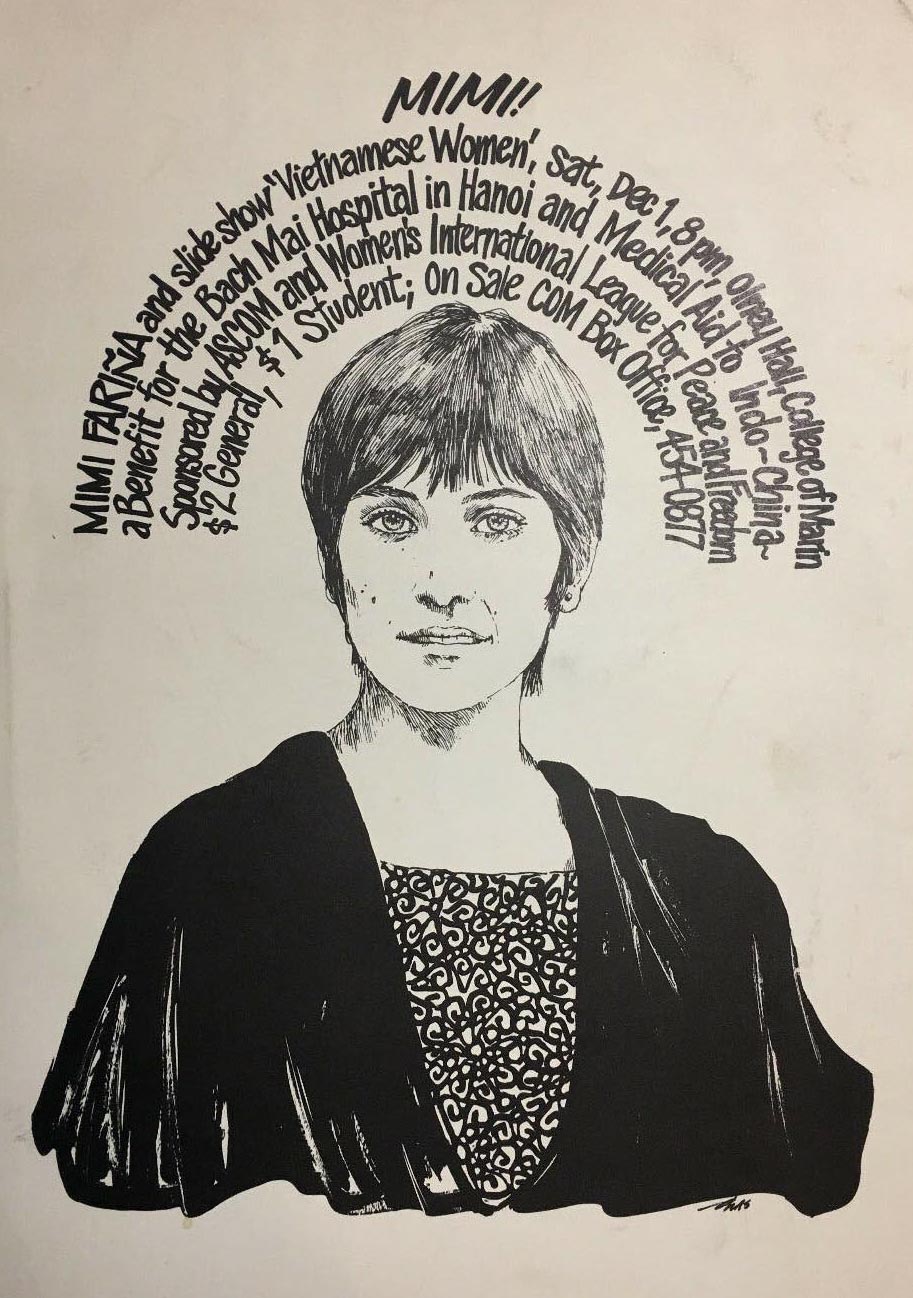 MIMI!
MIMI FARIÑA and slide show 'Vietnamese Women', Sat, Dec 1, 8 pm, Olney Hall, College of Marin
a Benefit for the Bach Mai Hospital in Hanoi and Medical Aid to Indo-China~
Sponsored by ASCOM and Women's International League for Peace and Freedom
$2 General, $1 Student; On Sale COM Box Office, 454-0877